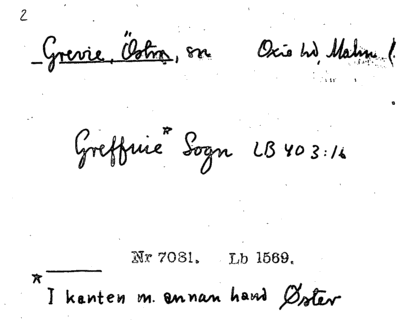 2
Grevie, Östra, sn Oxie hd, Malm l.
Greffuie* Sogn LB 403:16
Nr 7081. Lb 1569.
* I kanten m. annan hand Øster